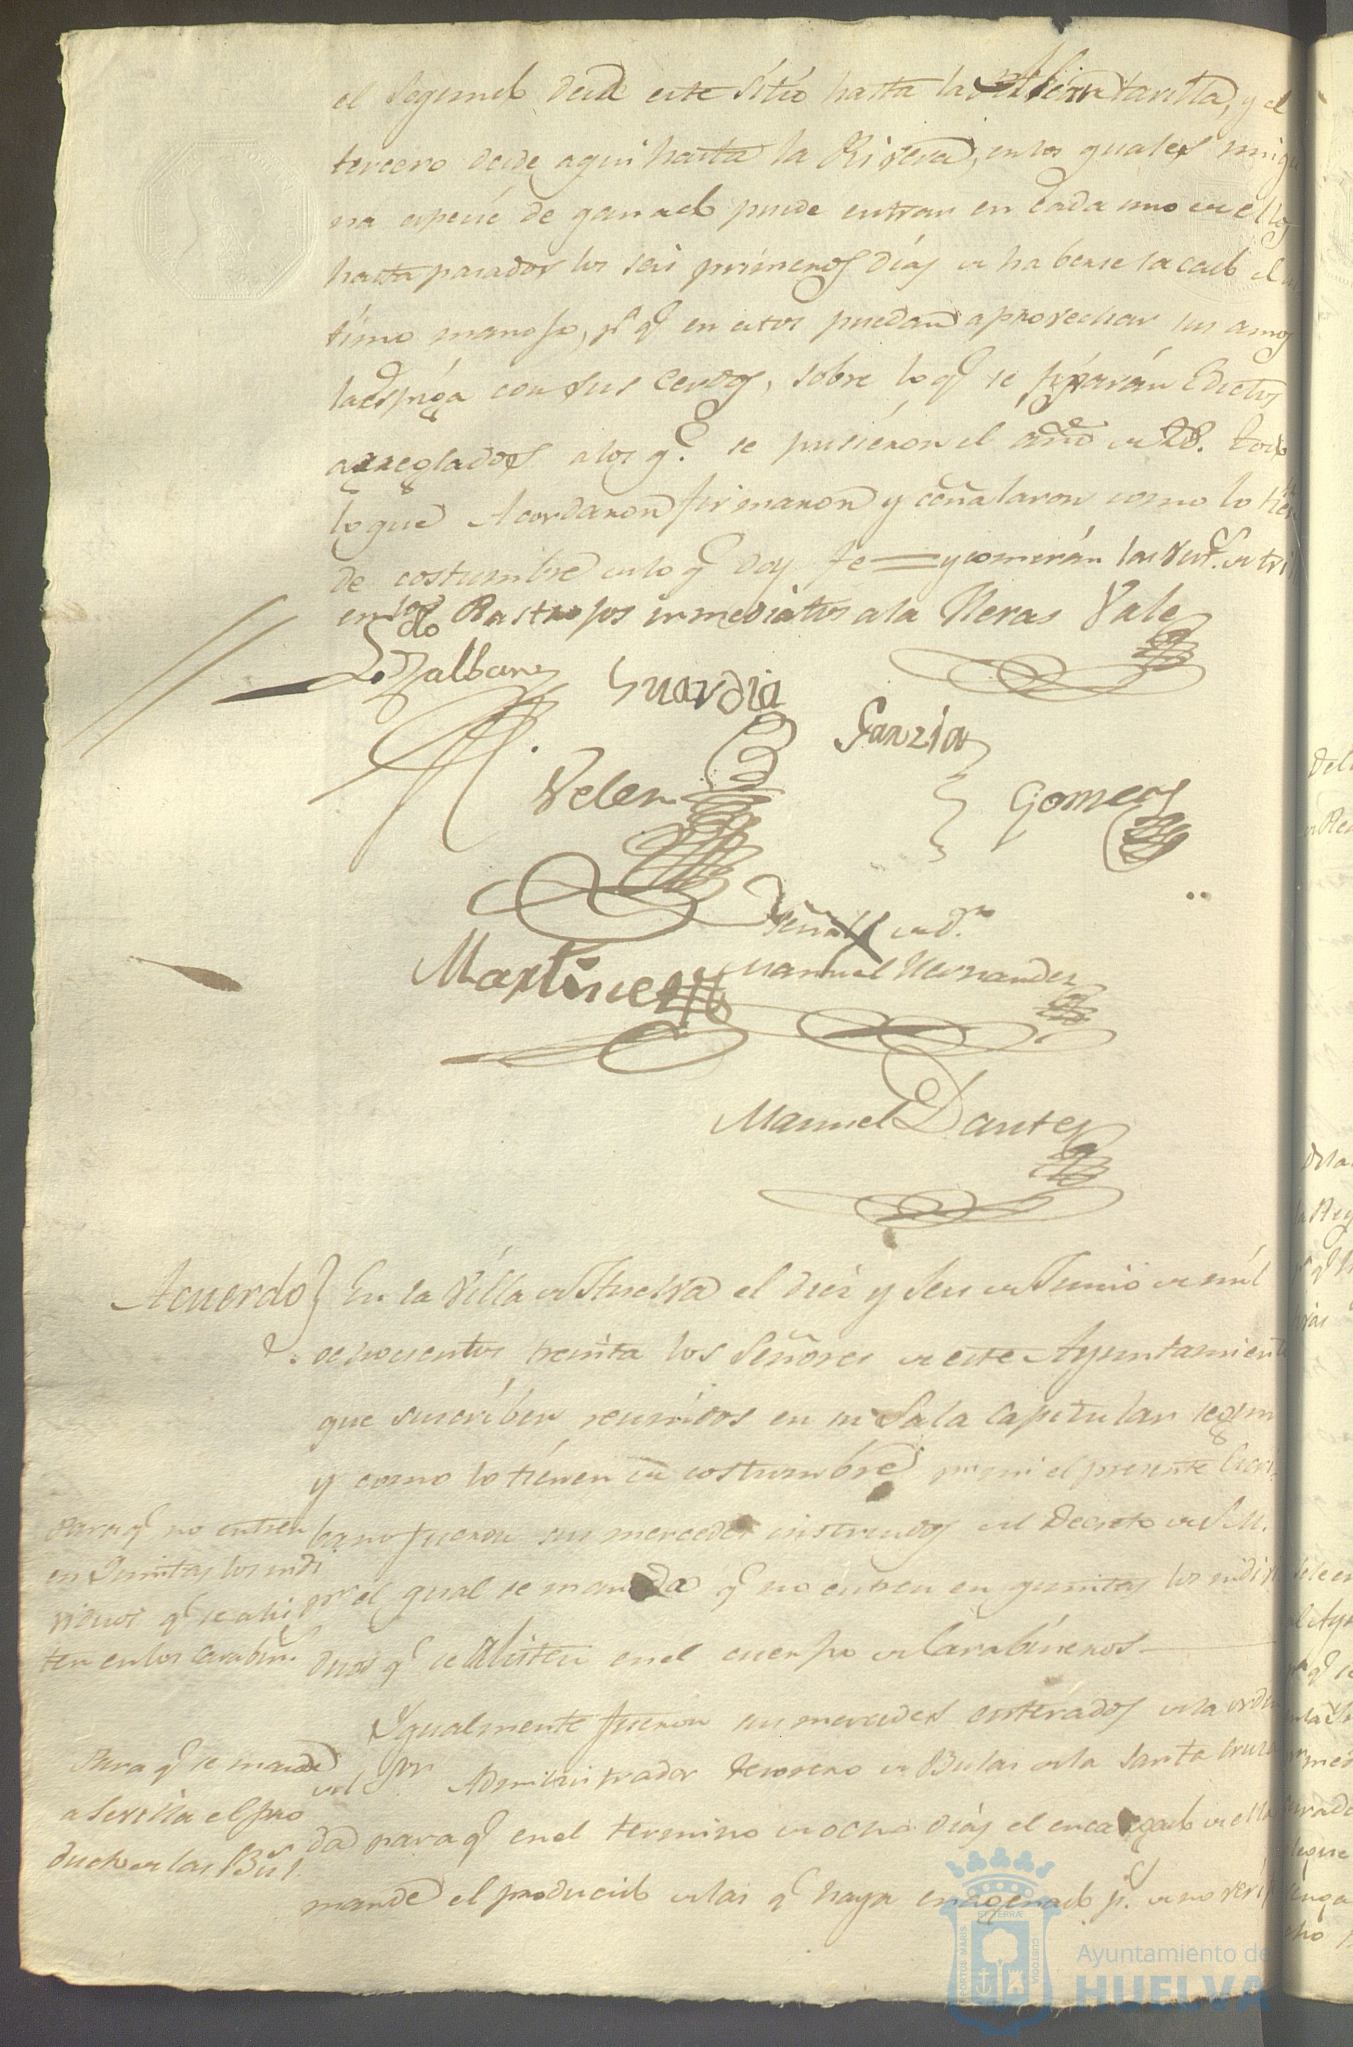 el segundo desde este sitio hasta la Alcantarilla, y el
tercero desde aqui hasta la Rivera, en los quales ningu
na especie de ganado puede entrar en cada uno de ellos
hasta pasados los seis primeros días de haberse sacado el ul
timo manojo, pª q.e en estos puedan aprovechar sus amos
la espiga con sus cerdos, sobre lo q.e se fijarán Edictos
arreglados a los q.e se pusieron el año de 28. Todo
lo que Acordaron firmaron y señalaron como lo tien
de costumbre de lo q.e doy fe = y comerán las
en los Rastrojos inmediatos a la Heras Vale
Guardia
Garzia
Velez
Gomez
Señal de D.n
Martinez
Manuel Hernandez
Manuel Dantes
Acuerdo
En la Villa de Huelva el diez y seis de Junio de mil
ochocientos treinta los Señores de este Ayuntamiento
que suscriben reunidos en su Sala Capitular segun
y como lo tienen de costumbre pr. mi el presente Escri
bano fueron sus mercedes instruidos del Decreto de S.M.
pr. el qual se manda q.e no entren en quintas los indivi
duos q.e se alisten en el cuerpo de Carabineros
Para q.e no entren
en Quintas los indi
viduos q.e se alis
ten en los Carabin.s
Ygualmente fueron sus mercedes enterados de la orden
del Sor. Administrador Tesorero de Bulas de la Santa Cruza
da para q.e en el termino de ocho días el encargado de ella
mande el producido de las q.e haya enagenado p.s de no veri
Para q.e se mande
a Sevilla el pro
ducto de las Bul.s
Ayuntamiento de
HUELVA